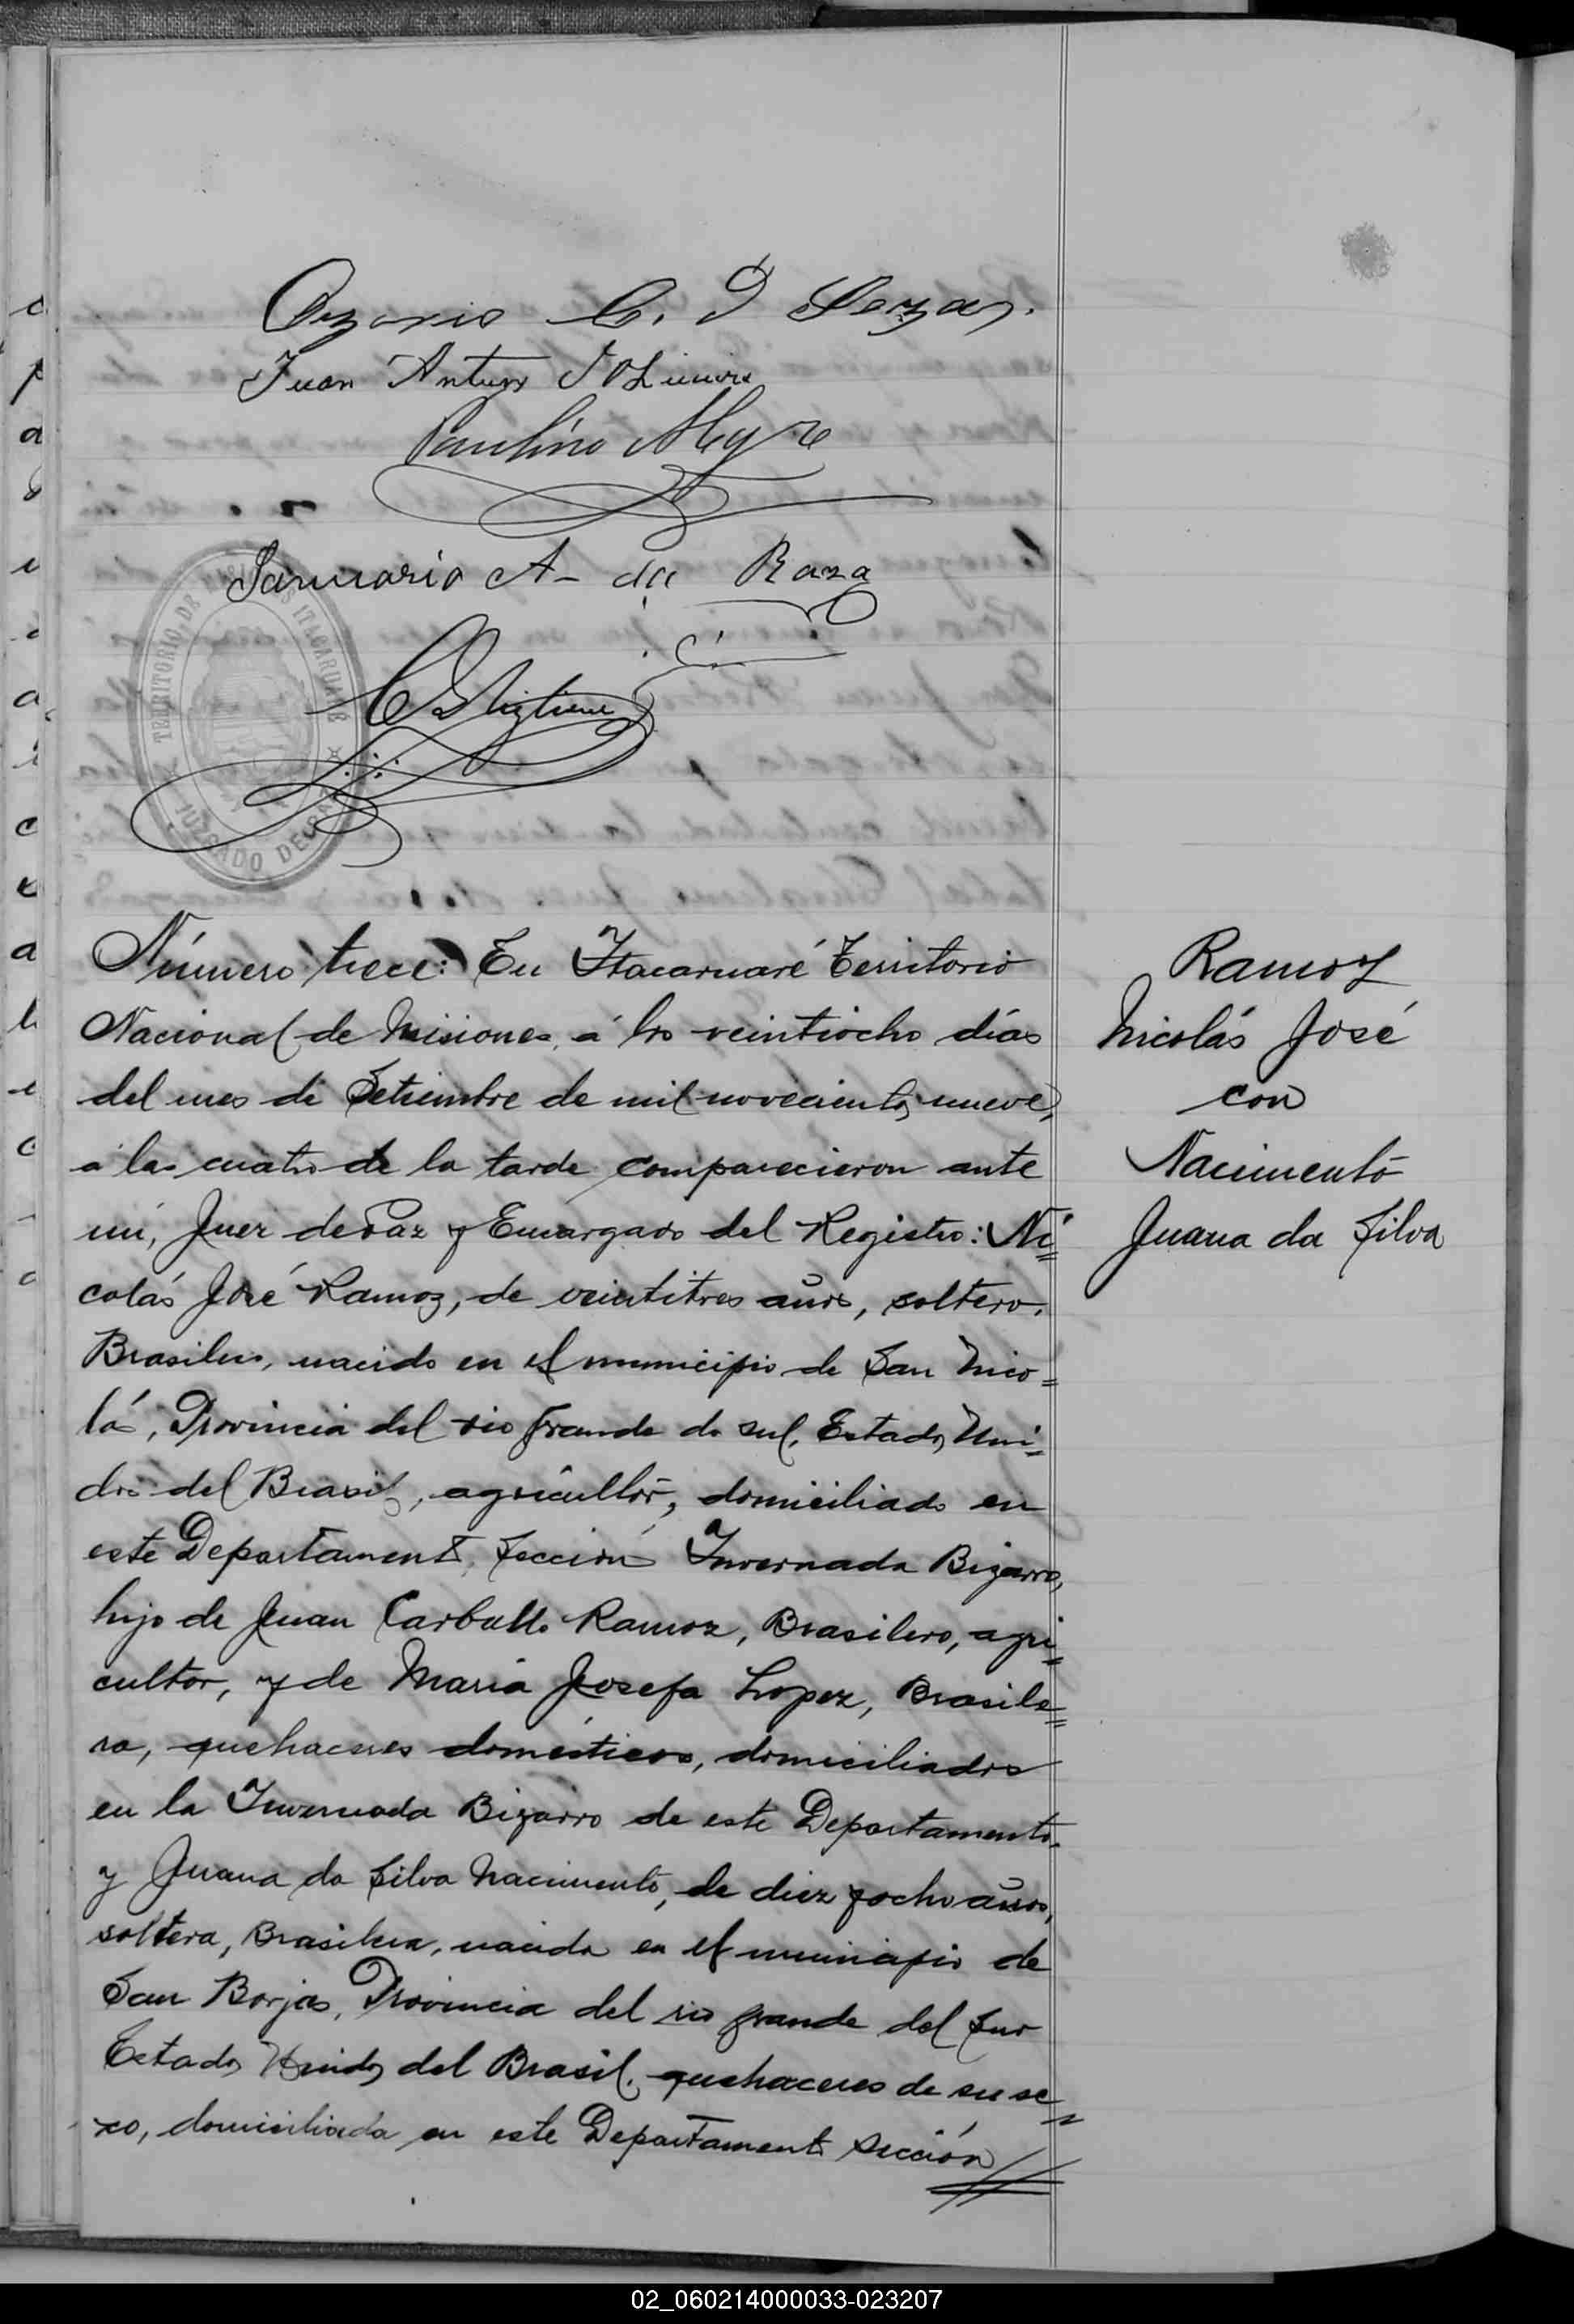 Juan Antunes
Paulino Alegre
Januario A- da Roza
TERRITORIO DE MISIONES ITACARUARÉ
JUZGADO DE PAZ
Número trece: En Itacaruaré Territorio
Nacional de Misiones, á los veintiocho días
del mes de Setiembre de mil novecientos nueve,
a las cuatro de la tarde comparecieron ante
mi, Juez de Paz y Encargado del Registro: Ni=
colás José Ramoz, de veintitres años, soltero,
Brasilero, nacido en el municipio de San Nico=
lás, Provincia del rio grande do sul, Estados Uni=
dos del Brasil, agricultor, domiciliado en
este Departamento, Sección Invernada Bizarro,
hijo de Juan Carballo Ramoz, Brasilero, agri=
cultor, y de Maria Josefa Lopez, Brasile=
ra, quehaceres domésticos, domiciliados
en la Invernada Bizarro de este Departamento.
y Juana da Silva Nacimento, de diez y ocho años,
soltera, Brasilera, nacida en el municipio de
San Borjas, Provincia del rio grande del Sur
Estados Unidos del Brasil, quehaceres de su se=
xo, domiciliada en este Departamento sección
Ramoz
Nicolás José
con
Nacimento
Juana da Silva
02_060214000033-023207